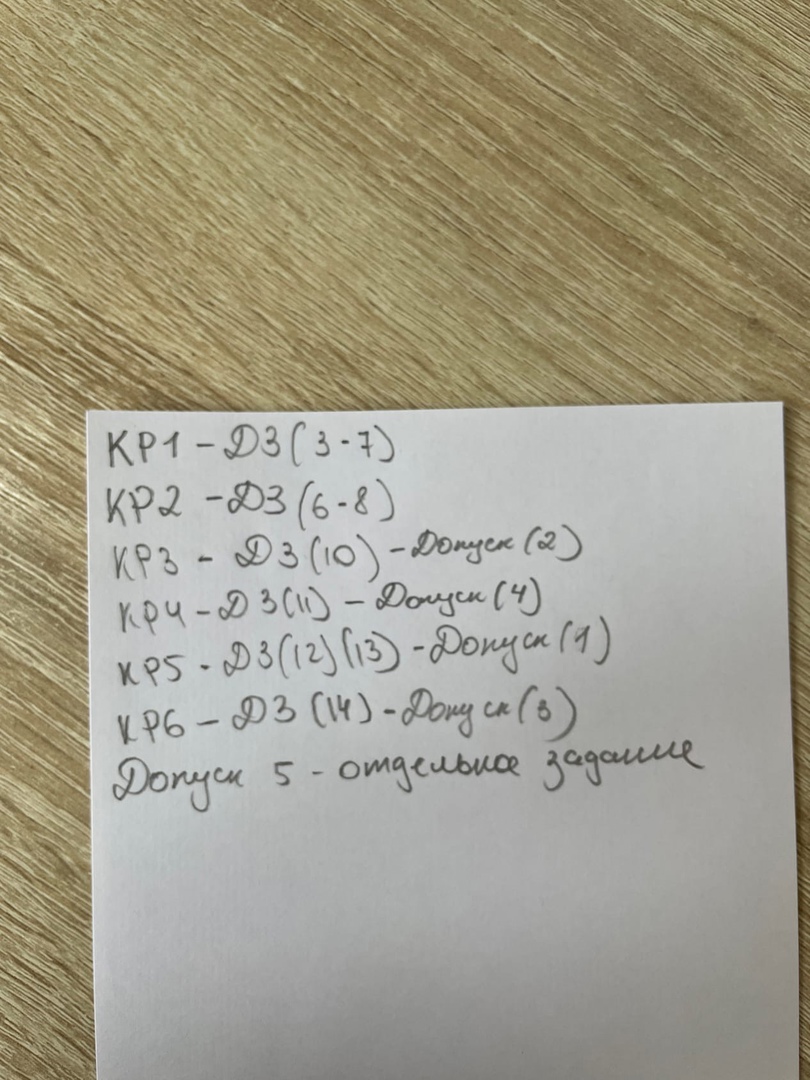 КР1 - ДЗ(3-7)
КР2 - ДЗ(6-8)
КР3 - ДЗ(10) - Допуск(2)
КР4 - ДЗ(11) - Допуск(4)
КР5 - ДЗ(12)(13) - Допуск(1)
КР6 - ДЗ(14) - Допуск(3)
Допуск 5 - отдельное задание